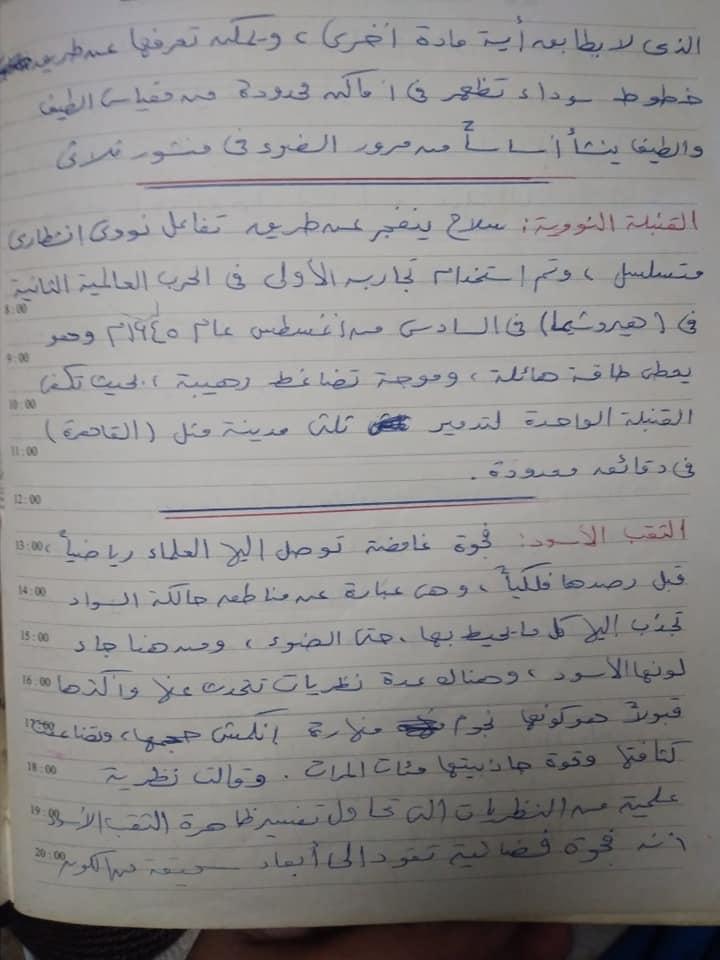 الذى لا يطابق أية مادة أخرى) ، ويمكن تعرفها عن طريق
خطوط سوداء تظهر فى أماكن محدودة من مقياس الطيف
والطيف ينشأ أساساً من مرور الضوء فى منشور ثلاثى
القنبلة النووية: سلاح ينفجر عن طريق تفاعل نووى انشطارى
متسلسل ، وتم استخدام تجاربه الأولى فى الحرب العالمية الثانية
8:00
فى (هيروشيما) فى السادس من أغسطس عام ١٩٤٥م وهو
9:00
يعطى طاقة هائلة ، وموجة تضاغط رهيبة ، بحيث تكفى
10:00
القنبلة الواحدة لتدمير ثلث مدينة مثل (القاهرة)
11:00
فى دقائق معدودة .
12:00
الثقب الأسود: فجوة غامضة توصل إليها العلماء رياضياً
13:00
قبل رصدها فلكياً ، وهى عبارة عن مناطق حالكة السواد
14:00
تجذب إليها كل ما يحيط بها ، حتى الضوء ، ومن هنا جاء
15:00
لونها الأسود ، وهناك عدة نظريات تتحدث عنها وأكثرها
16:00
قبولاً هو كونها نجوم منهارة إنكمش حجمها، وتضاعفت
17:00
كثافتها وقوة جاذبيتها مئات المرات . وقالت نظرية
18:00
علمية من النظريات التى تحاول تفسير ظاهرة الثقب الأسود
19:00
أنه فجوة فضائية تقود إلى أبعاد سحيقة من الكون
20:00